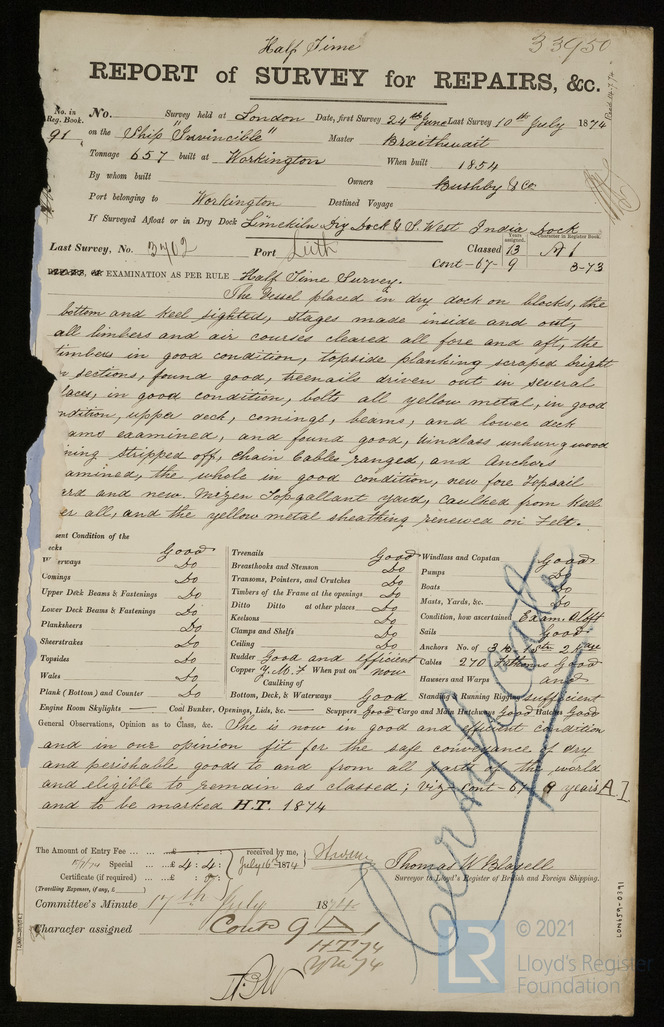 Half Time
33950
REPORT of SURVEY for REPAIRS, &c.
No. in Reg. Book.
No. Survey held at London Date, first Survey 24th June Last Survey 10th July 1874
91 on the Ship "Invincible" Master Braithwait
Tonnage 657 built at Workington When built 1854
By whom built Owners Bushby & Co
Port belonging to Workington Destined Voyage
If Surveyed Afloat or in Dry Dock Limekiln Dry Dock & S. West India Dock
Years assigned. Character in Register Book.
Last Survey, No. 3702 Port Leith Classed 13 A 1
Cont - 67 - 9 3-73
EXAMINATION AS PER RULE Half Time Survey.
The Vessel placed in dry dock on blocks, the
bottom and keel sighted, stages made inside and out,
all limbers and air courses cleared all fore and aft, the
timbers in good condition, topside planking scraped bright
sections, found good, treenails driven out in several
laces, in good condition, bolts all yellow metal, in good
ndition, upper deck, comings, beams, and lower deck
ams examined, and found good, windlass unhung wood
ning stripped off, chain Cables ranged, and Anchors
amined, the whole in good condition, new fore Topsail
ard and new Mizen Topgallant yard, caulked from keel
er all, and the yellow metal sheathing renewed on Felt.
sent Condition of the
ecks Good
erways Do
Comings Do
Upper Deck Beams & Fastenings Do
Lower Deck Beams & Fastenings Do
Planksheers Do
Sheerstrakes Do
Topsides Do
Wales Do
Plank (Bottom) and Counter Do
Treenails Good
Breasthooks and Stemson Do
Transoms, Pointers, and Crutches Do
Timbers of the Frame at the openings Do
Ditto Ditto at other places Do
Keelsons Do
Clamps and Shelfs Do
Ceiling Do
Rudder Good and efficient
Copper Y.M.F When put on now
Caulking of
Bottom, Deck, & Waterways Good
Windlass and Capstan Good
Pumps Do
Boats Do
Masts, Yards, &c. Do
Condition, how ascertained Exam. Aloft
Sails Good
Anchors No. of 3 B. 1 Stn 2
Cables 270 Fathoms Good
Hawsers and Warps and
Standing & Running Rigging sufficient
Engine Room Skylights — Coal Bunker, Openings, Lids, &c. — Scuppers Good Cargo and Main Hatchways Good Hatches Good
General Observations, Opinion as to Class, &c. She is now in good and efficient condition
and in our opinion fit for the safe conveyance of dry
and perishable goods to and from all parts of the world
and eligible to remain as classed; viz Cont - 67 - 9 years A 1
and to be marked H.T. 1874
The Amount of Entry Fee ... ... £ : : received by me,
Special ... £ 4 : 4 : July 16th 1874
Certificate (if required) ... £ : :
(Travelling Expenses, if any, £ )
Thomas W Blaxell
Surveyor to Lloyd's Register of British and Foreign Shipping.
Committee's Minute 17th July 1874
Character assigned Contd 9 A 1
HT 74
YM 74
Certificate
LON659-0391
LR
© 2021
Lloyd's Register
Foundation